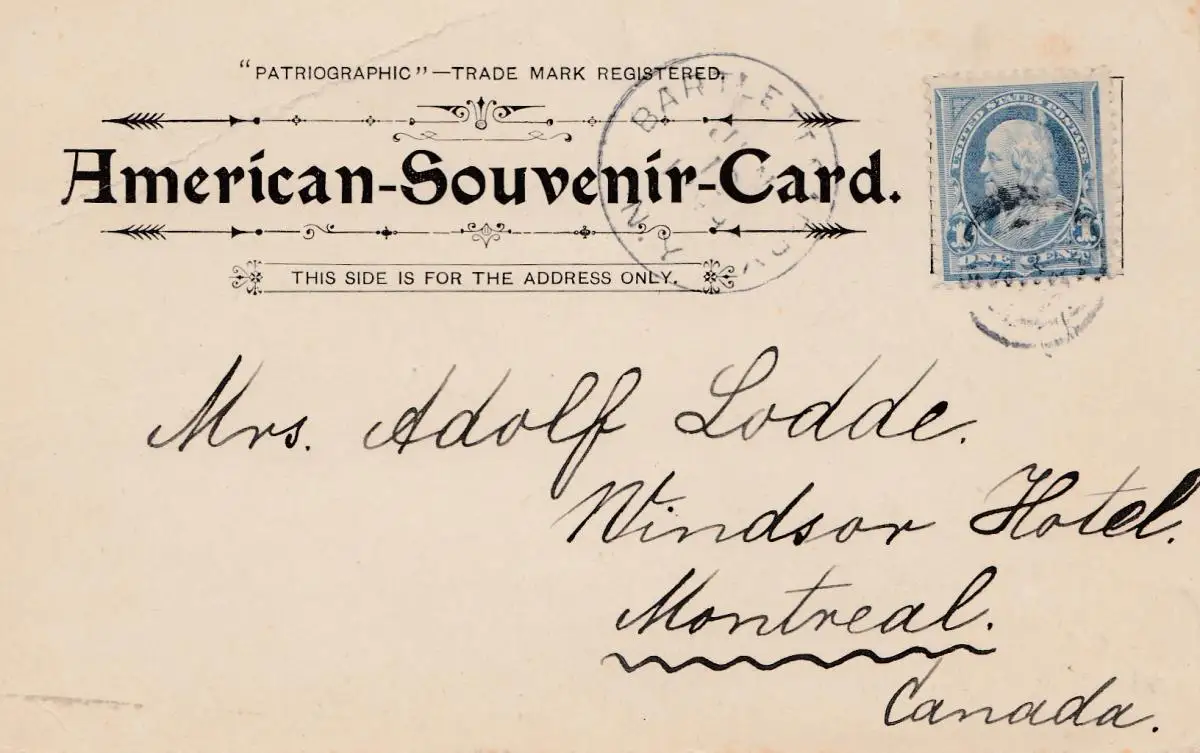 "PATRIOGRAPHIC"—TRADE MARK REGISTERED.
American-Souvenir-Card.
THIS SIDE IS FOR THE ADDRESS ONLY.
BARTLETT
N.Y.
UNITED STATES POSTAGE
1 1
ONE CENT
Mrs. Adolf Lodde.
Windsor Hotel.
Montreal.
Canada.